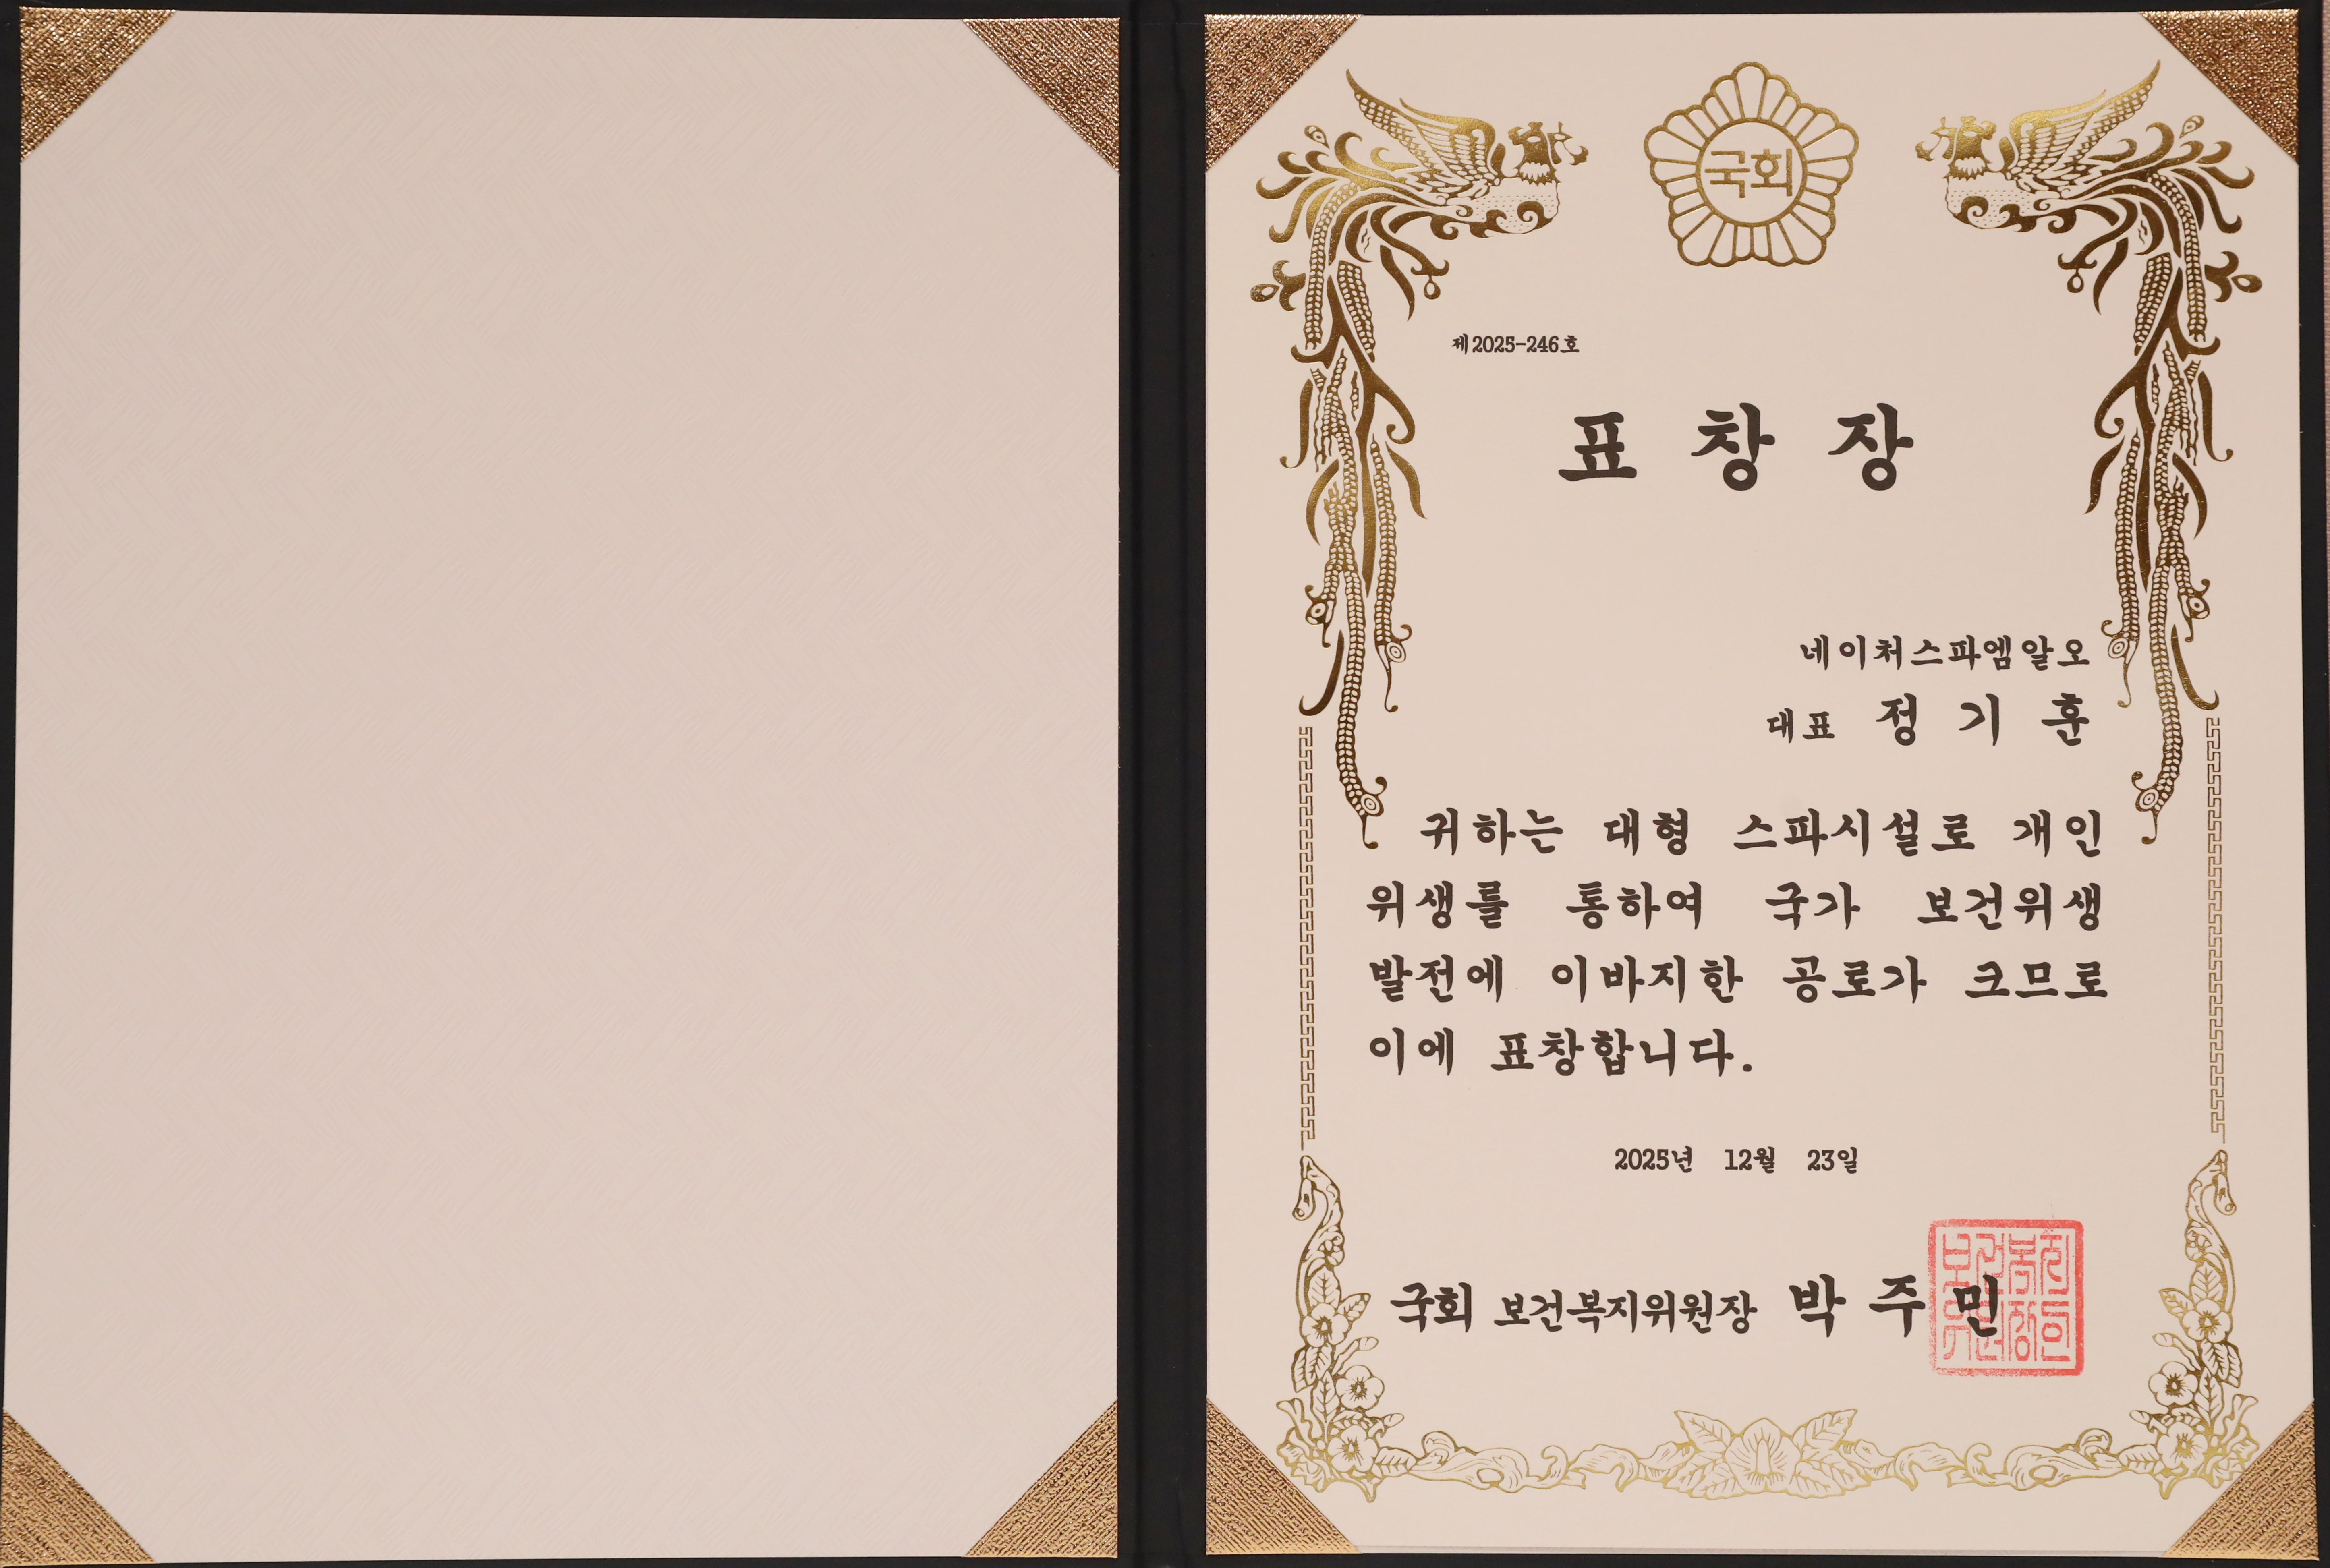 국회
제2025-246호
표 창 장
네이처스파엠알오
대표 정 기 훈
귀하는 대형 스파시설로 개인
위생를 통하여 국가 보건위생
발전에 이바지한 공로가 크므로
이에 표창합니다.
2025년 12월 23일
국회 보건복지위원장 박 주 민